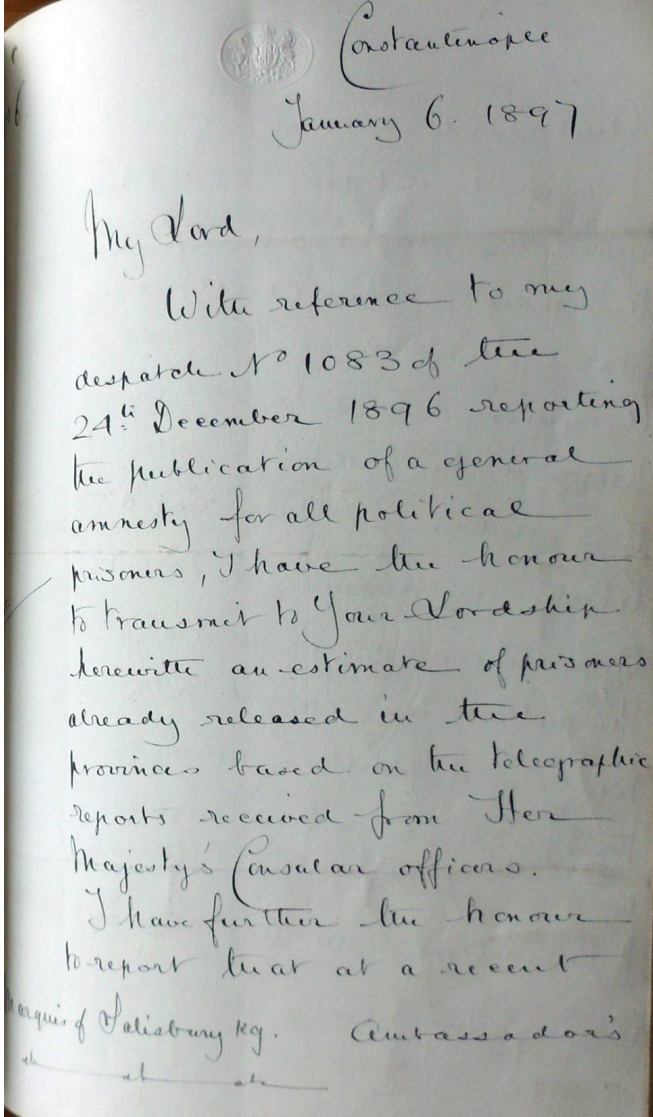 Constantinople
January 6. 1897
My Lord,
With reference to my
despatch No 1083 of the
24th December 1896 reporting
the publication of a general
amnesty for all political
prisoners, I have the honour
to transmit to Your Lordship
herewith an estimate of prisoners
already released in the
provinces based on the telegraphic
reports received from Her
Majesty's Consular officers.
I have further the honour
to report that at a recent
Marquis of Salisbury KG. Ambassador's